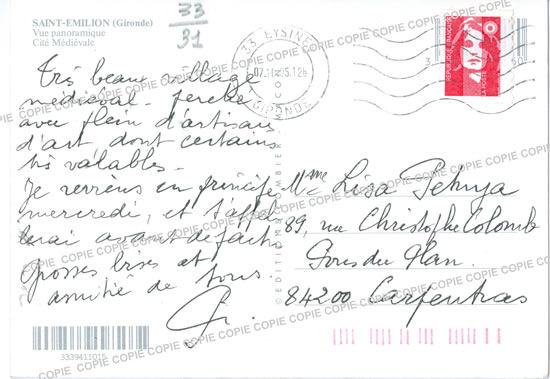 SAINT-EMILION (Gironde)
Vue panoramique
Cité Médiévale
33
31
33 EYSINES
GIRONDE
REPUBLIQUE FRANÇAISE
LA POSTE
Très beau village
médiéval - perché
avec plein d'artisans
d'art, dont certains
très valables -
Je reviens en principe
mercredi, et t'appel
lerai avant de fait
Grosses bises et
amitié de tous.
Mme Lisa
89, rue Christophe Colomb
84200 Carpentras
3339411015
COPIE COPIE COPIE COPIE COPIE COPIE